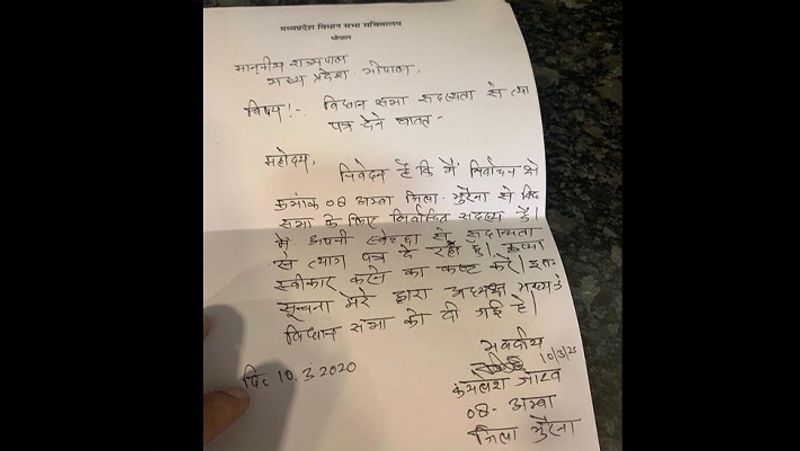 मध्यप्रदेश विधान सभा सचिवालय
भोपाल
माननीय राज्यपाल
मध्य प्रदेश भोपाल,
विषय!- विधान सभा सदस्यता से त्याग
पत्र देने बावत-
महोदय,
निवेदन है कि मैं निर्वाचन क्षे
क्रमांक 08 अम्बा जिला मुरैना से विध
सभा के लिए निर्वाचित सदस्य हूँ।
मैं अपनी स्वेच्छा से सदस्यता
से त्याग पत्र दे रहा हूँ। कृप्या
स्वीकार करने का कष्ट करें। इस
सूचना मेरे द्वारा अध्यक्ष मध्य
विधान सभा को दी गई है।
भवदीय
10/3/20
दि 10.3.2020
कमलेश जाटव
08- अम्बा
जिला मुरैना